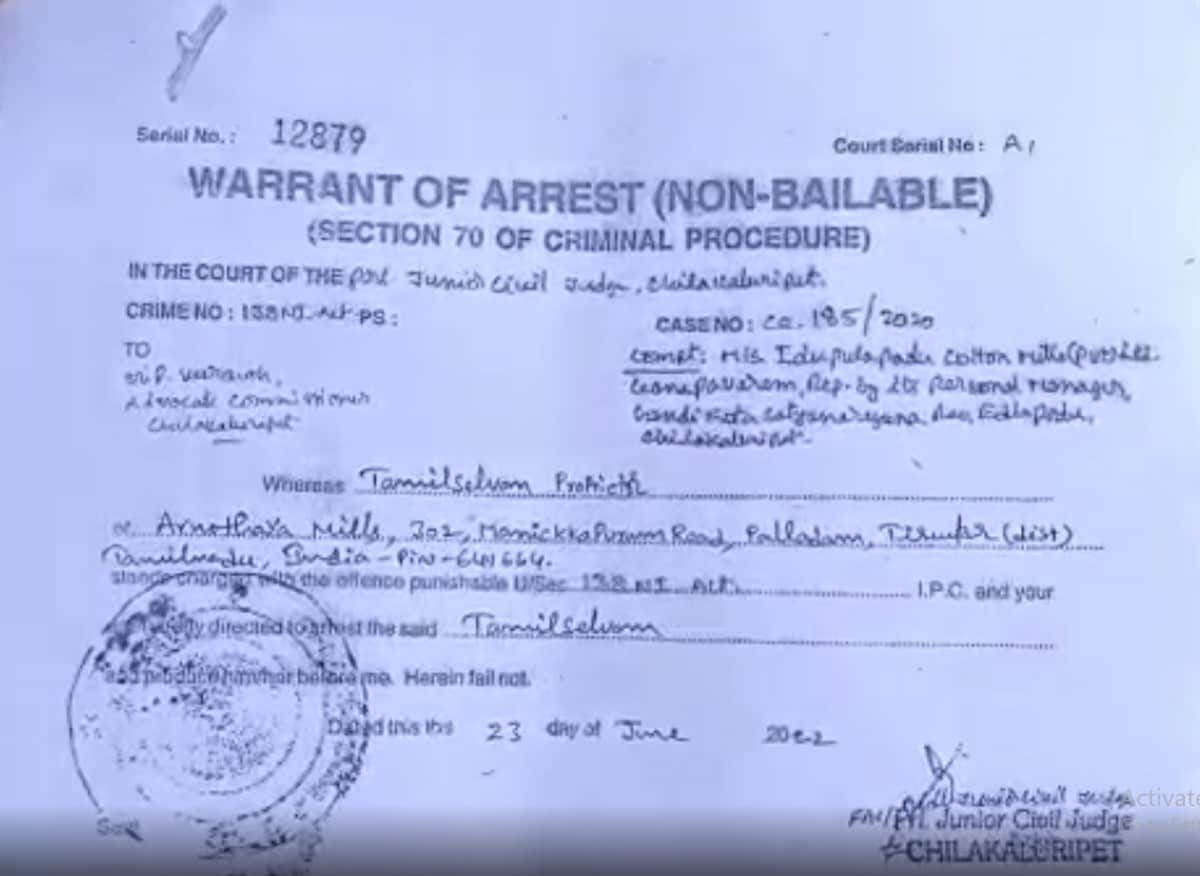 Serial No. : 12879
Court Serial No : A1
WARRANT OF ARREST (NON-BAILABLE)
(SECTION 70 OF CRIMINAL PROCEDURE)
IN THE COURT OF THE Prl Junior Civil Judge, Chilakaluripet.
CRIME NO : 138 NI Act PS :
CASE NO : CC. 185/2020
TO
Sri P.
Advocate Commissioner
Chilakaluripet
Compt: M/s. Edupulapadu Cotton Mills (Pvt)
Ganapavaram, Rep. by its Personal Manager,
Gandikota Satyanarayana Rao, Edlapadu,
Chilakaluripet.
Whereas Tamilselvam
of Mills, 302, Manickkapuram Road, Palladam, (dist)
Tamilnadu, India - Pin - 641664.
stands charged with the offence punishable U/Sec 138 NI Act. I.P.C. and your
directed to arrest the said Tamilselvam
and produce him/her before me. Herein fail not.
Dated this the 23 day of June 2022
Seal
Junior Civil Judge
Prl. Junior Civil Judge
CHILAKALURIPET
Activate